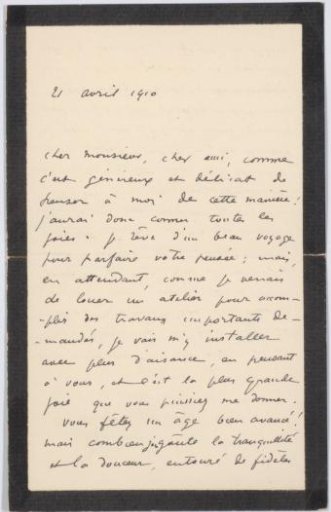 21 avril 1910
cher monsieur, cher ami, comme
c'est généreux et délicat de
penser à moi de cette manière!
j'aurai donc connu toutes les
joies. je rêve d'un beau voyage
pour parfaire votre pensée; mais,
en attendant, comme je venais
de louer un atelier pour accom-
-plir des travaux importants de-
-mandés, je vais m'y installer
avec plus d'aisance, en pensant
à vous, et c'est la plus grande
joie que vous puissiez me donner.
Vous fêtez un âge bien avancé!
mais combien la tranquillité
et la douceur, entouré de fidèles